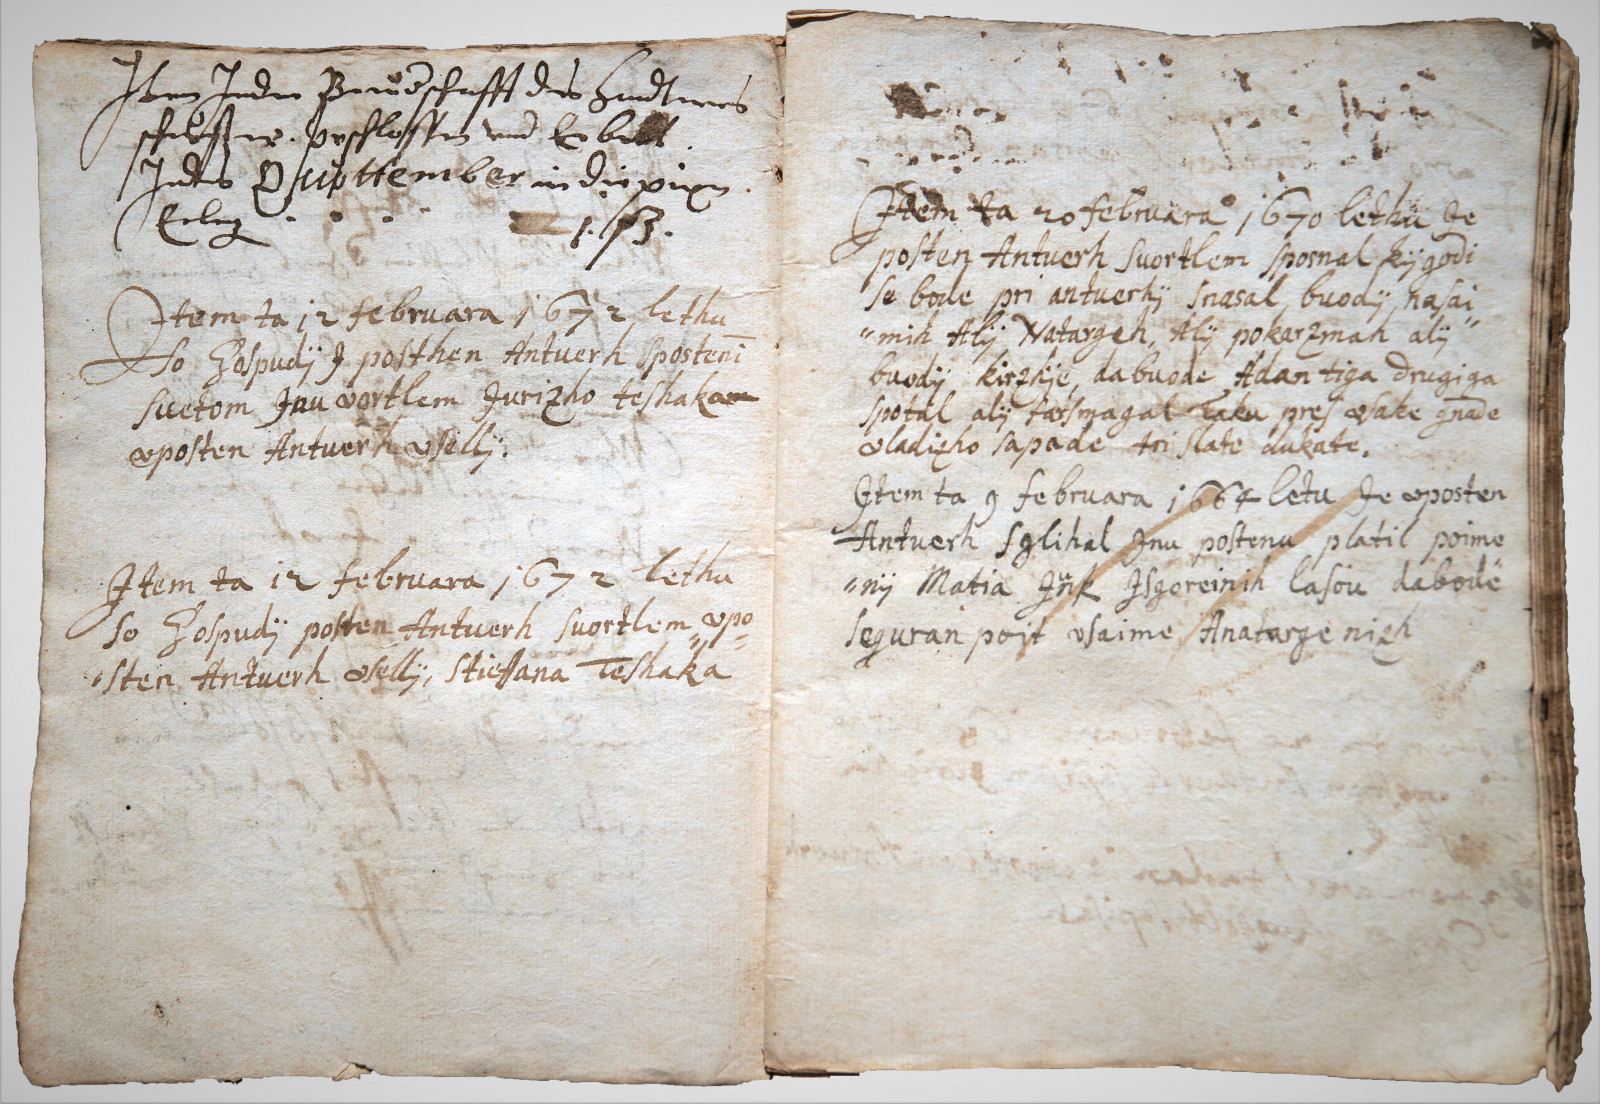 Item Jeder Brueederschafft des Handtwers
schuster. beschlossen und Erbett
Jedes Quttember in die pixn
Erleg . . . . . 1. ß.
Item ta 12 februara 1672 lethu
so Gospudÿ I posthen Antverh sposteni
suetom Inu vortlem Jurizho teshakam
vposten Antuerh vsellÿ.
Item ta 12 februara 1672 lethu
so Gospudÿ posten Antverh suortlem vpo=
"sten Antuerh vsellÿ, stieffana Teshaka
Item ta 20 februara 1670 lethu Je
posten Antverh suortlem sposnal kÿgodi
se bode pri antuerhÿ snasal, buodÿ nasai"
"mih Alÿ Natargeh, Alÿ pokarzmah alÿ
buodÿ kirzhie, dabuode Adan tiga drugiga
spotal alÿ farsmagal taku prej vsake gnade
vladizho sapade tri slate dukate.
Item ta 9 februara 1664 letu Je vposten
Antuerh sglihal Inu postenu platil poime
"nÿ Matia Junk Isgoreinih lasou dabode
seguran pojt vsaime Anatarge nizh